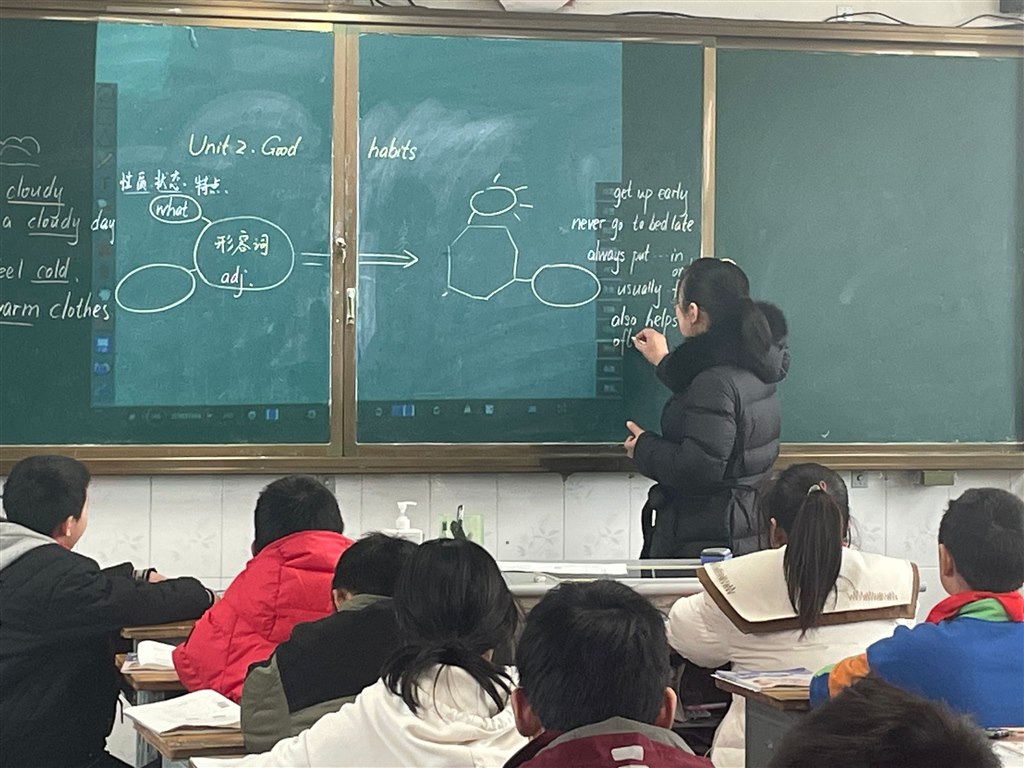 cloudy
a cloudy day
eel cold.
warm clothes
Unit 2. Good habits
性质.状态.特点.
what
形容词
adj.
get up early
never go to bed late
always put … in
usually
also helps